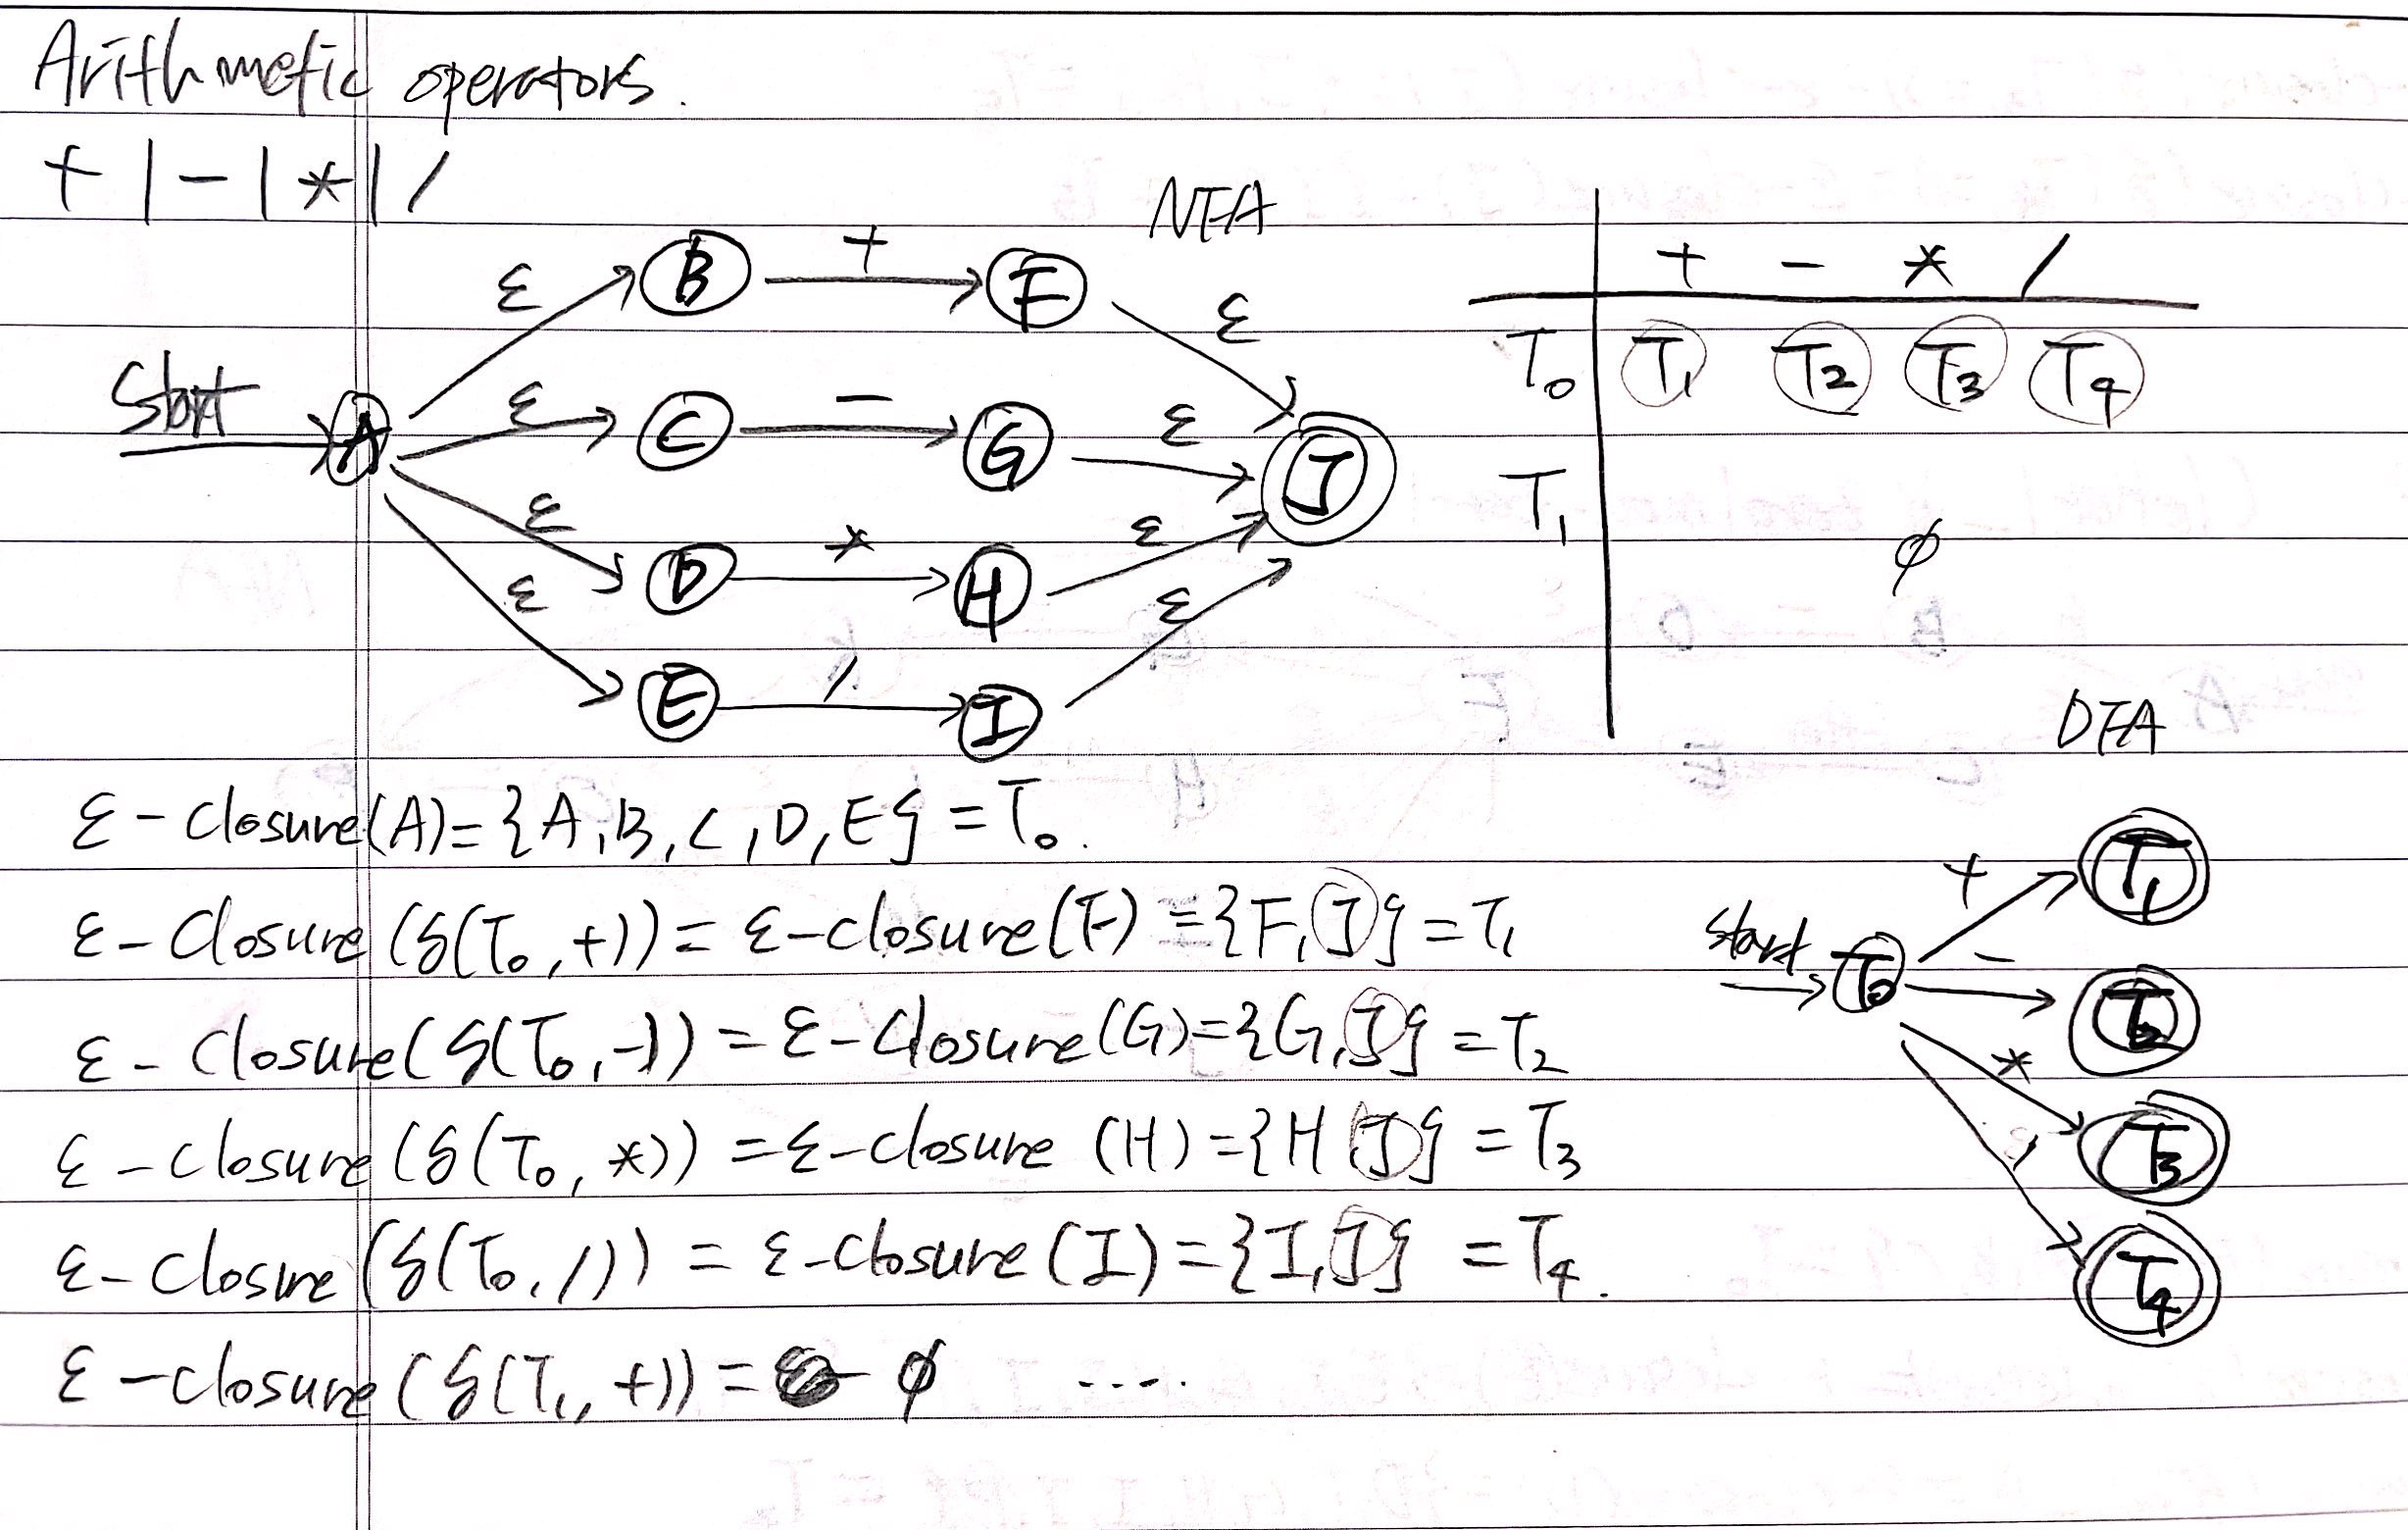 Arithmetic operators.
+ | - | * | /
NFA
Start
A
ε B + F ε
ε C - G ε
J
ε D * H ε
ε E / I ε
+ - * /
T₀ T₁ T₂ T₃ T₄
T₁
φ
DFA
ε-closure(A)={A,B,C,D,E}=T₀.
ε-Closure(δ(T₀,+))=ε-closure(F)={F,J}=T₁
ε-Closure(δ(T₀,-))=ε-Closure(G)={G,J}=T₂
ε-closure(δ(T₀,*))=ε-closure (H)={H J}=T₃
ε-Closure(δ(T₀,/))=ε-closure(I)={I,J}=T₄.
ε-closure(δ(T₁,+))= φ ....
start T₀
+ T₁
- T₂
* T₃
/ T₄